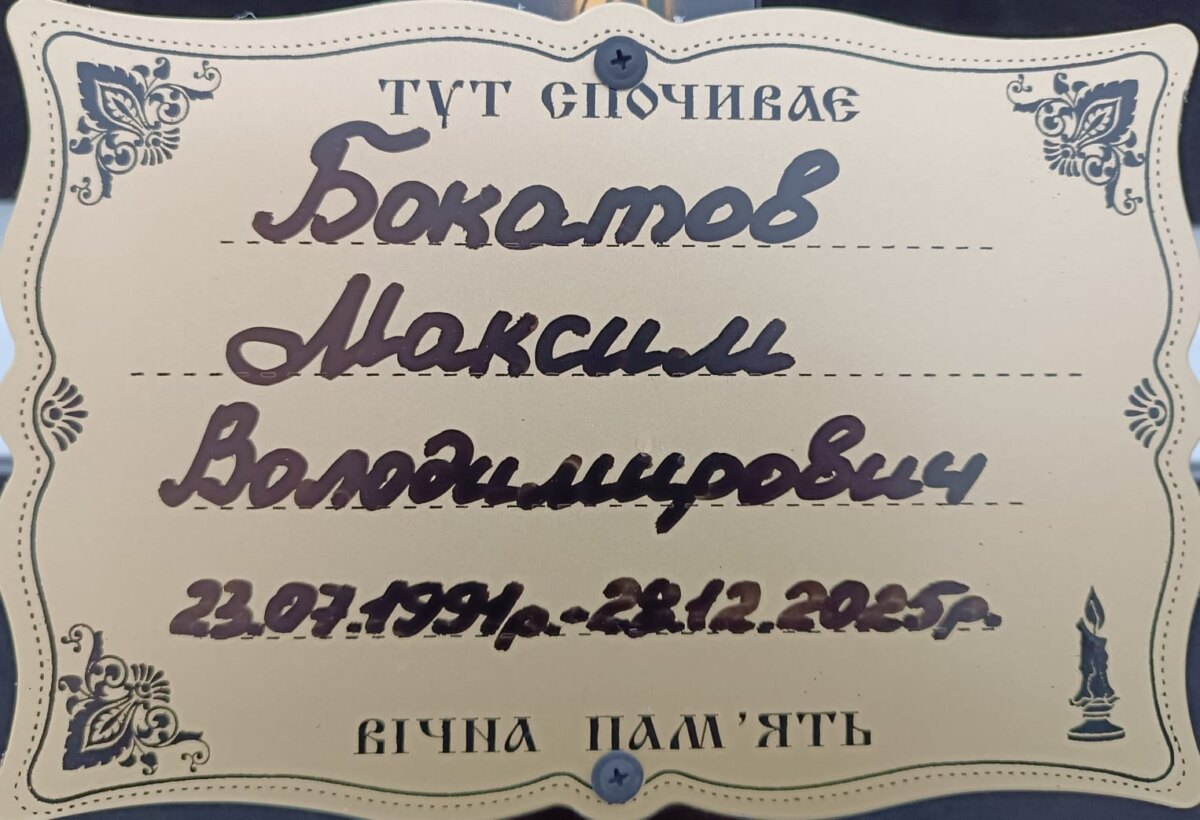 ТУТ СПОЧИВАЄ
Бокатов
Максим
Володимирович
23.07.1991р.-29.12.2025р.
ВІЧНА ПАМ'ЯТЬ